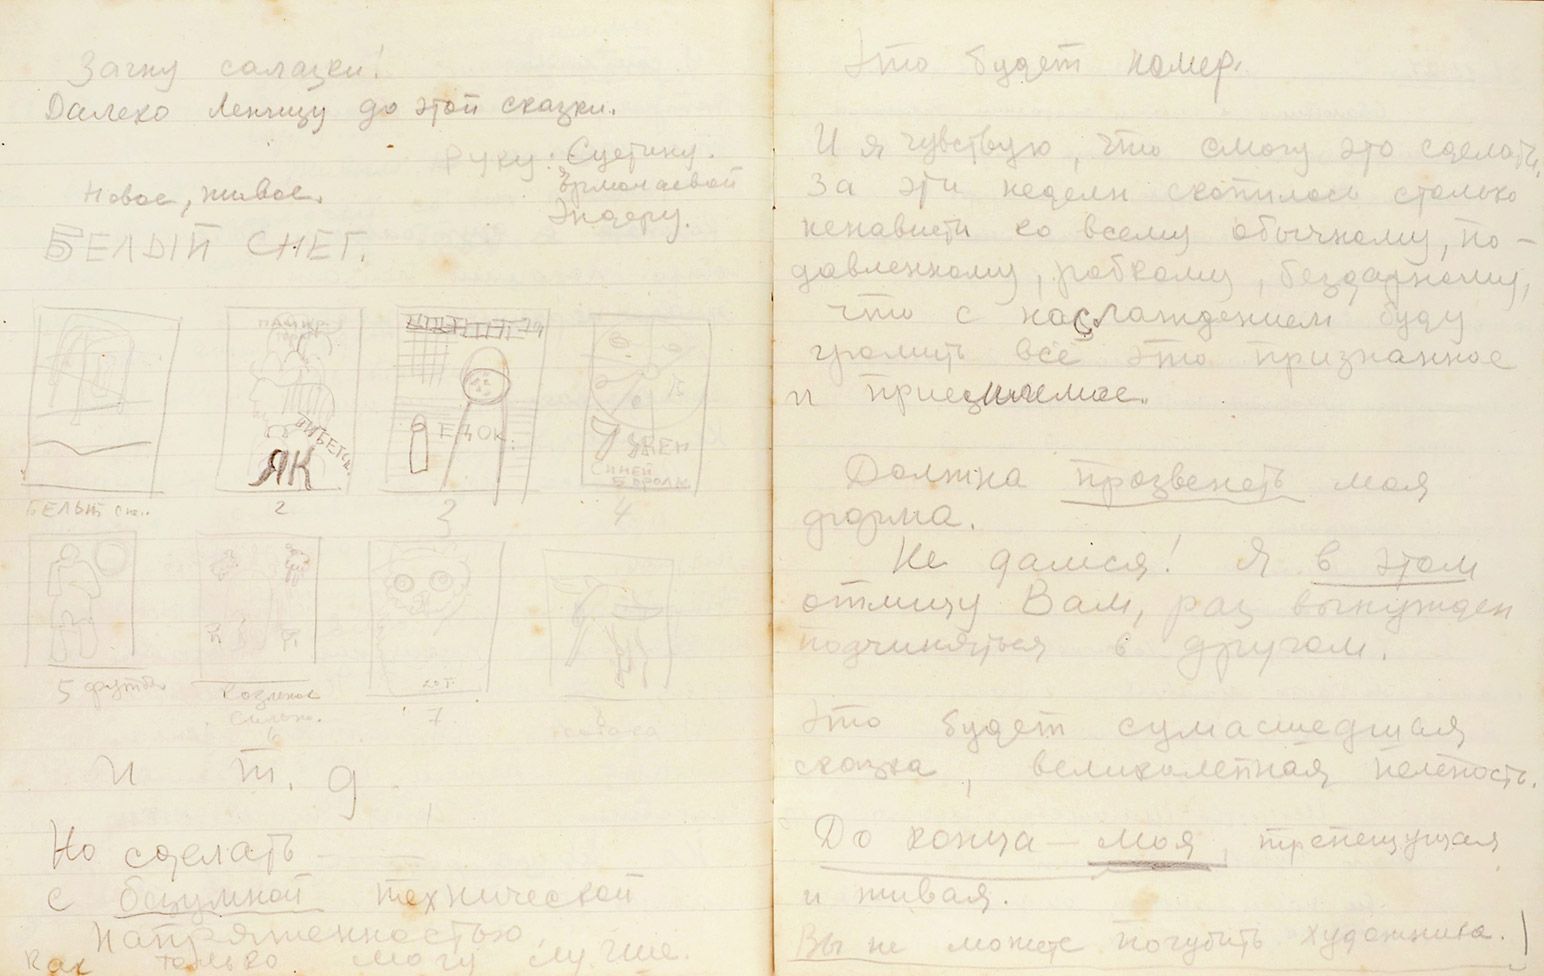 Загну салазки!
Далеко Ленчицу до этой сказки.
руку: Суетину.
Ермолаевой
Эндеру.
Новое, живое.
БЕЛЫЙ СНЕГ.
ЯК
ЕДОК.
Синей
БЕЛЫЙ
2
3
4
5
Козленок
сильно.
6
кот.
7
и т. д
Но сделать
с безумной технической
напряженностью
как только могу лучше.
Это будет номер.
И я чувствую, что смогу это сделать,
за эти недели скопилось столько
ненависти ко всему обычному, по-
давленному, робкому, бездарному,
что с наслаждением буду
громить всё это признанное
и приемлемое.
Должна прозвенеть моя
форма.
Не дамся! Я в этом
отмщу Вам, раз вынужден
подчиняться в другом.
Это будет сумасшедшая
сказка, великолепная нелепость.
До конца – моя, трепещущая
и живая.
Вы не можете погубить художника.